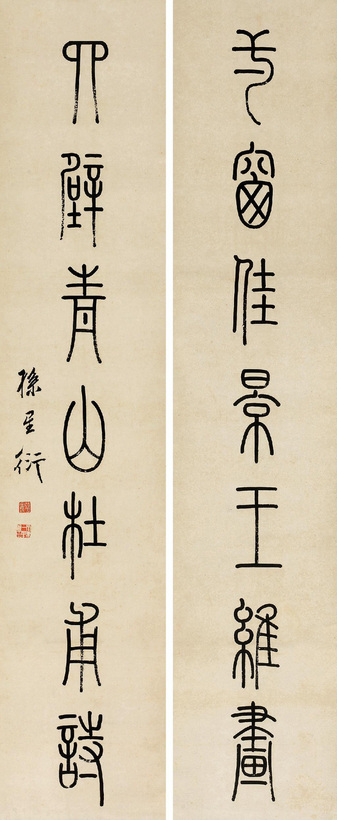 窗佳景王維畫
四壁青山杜甫詩
孫星衍